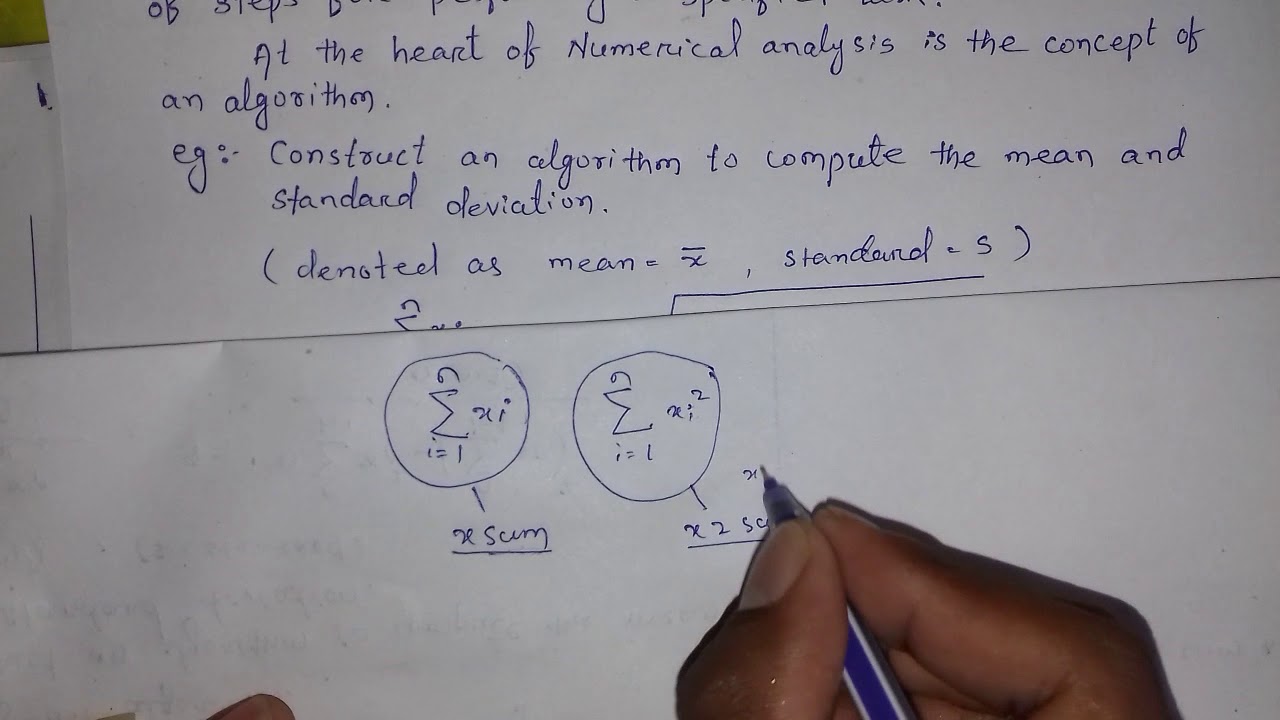 of steps
At the heart of Numerical analysis is the concept of
an algorithm.
eg:- Construct an algorithm to compute the mean and
standard deviation.
(denoted as mean = x̄ , standard = s)
n
n n
∑ xi ∑ xi²
i=1 i=1
x
xsum x2